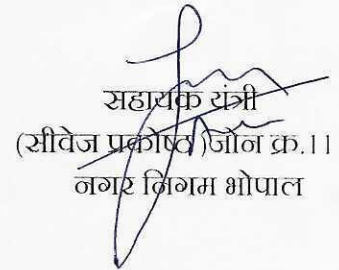 सहायक यंत्री
(सीवेज प्रकोष्ठ)जोन क्र.11
नगर निगम भोपाल